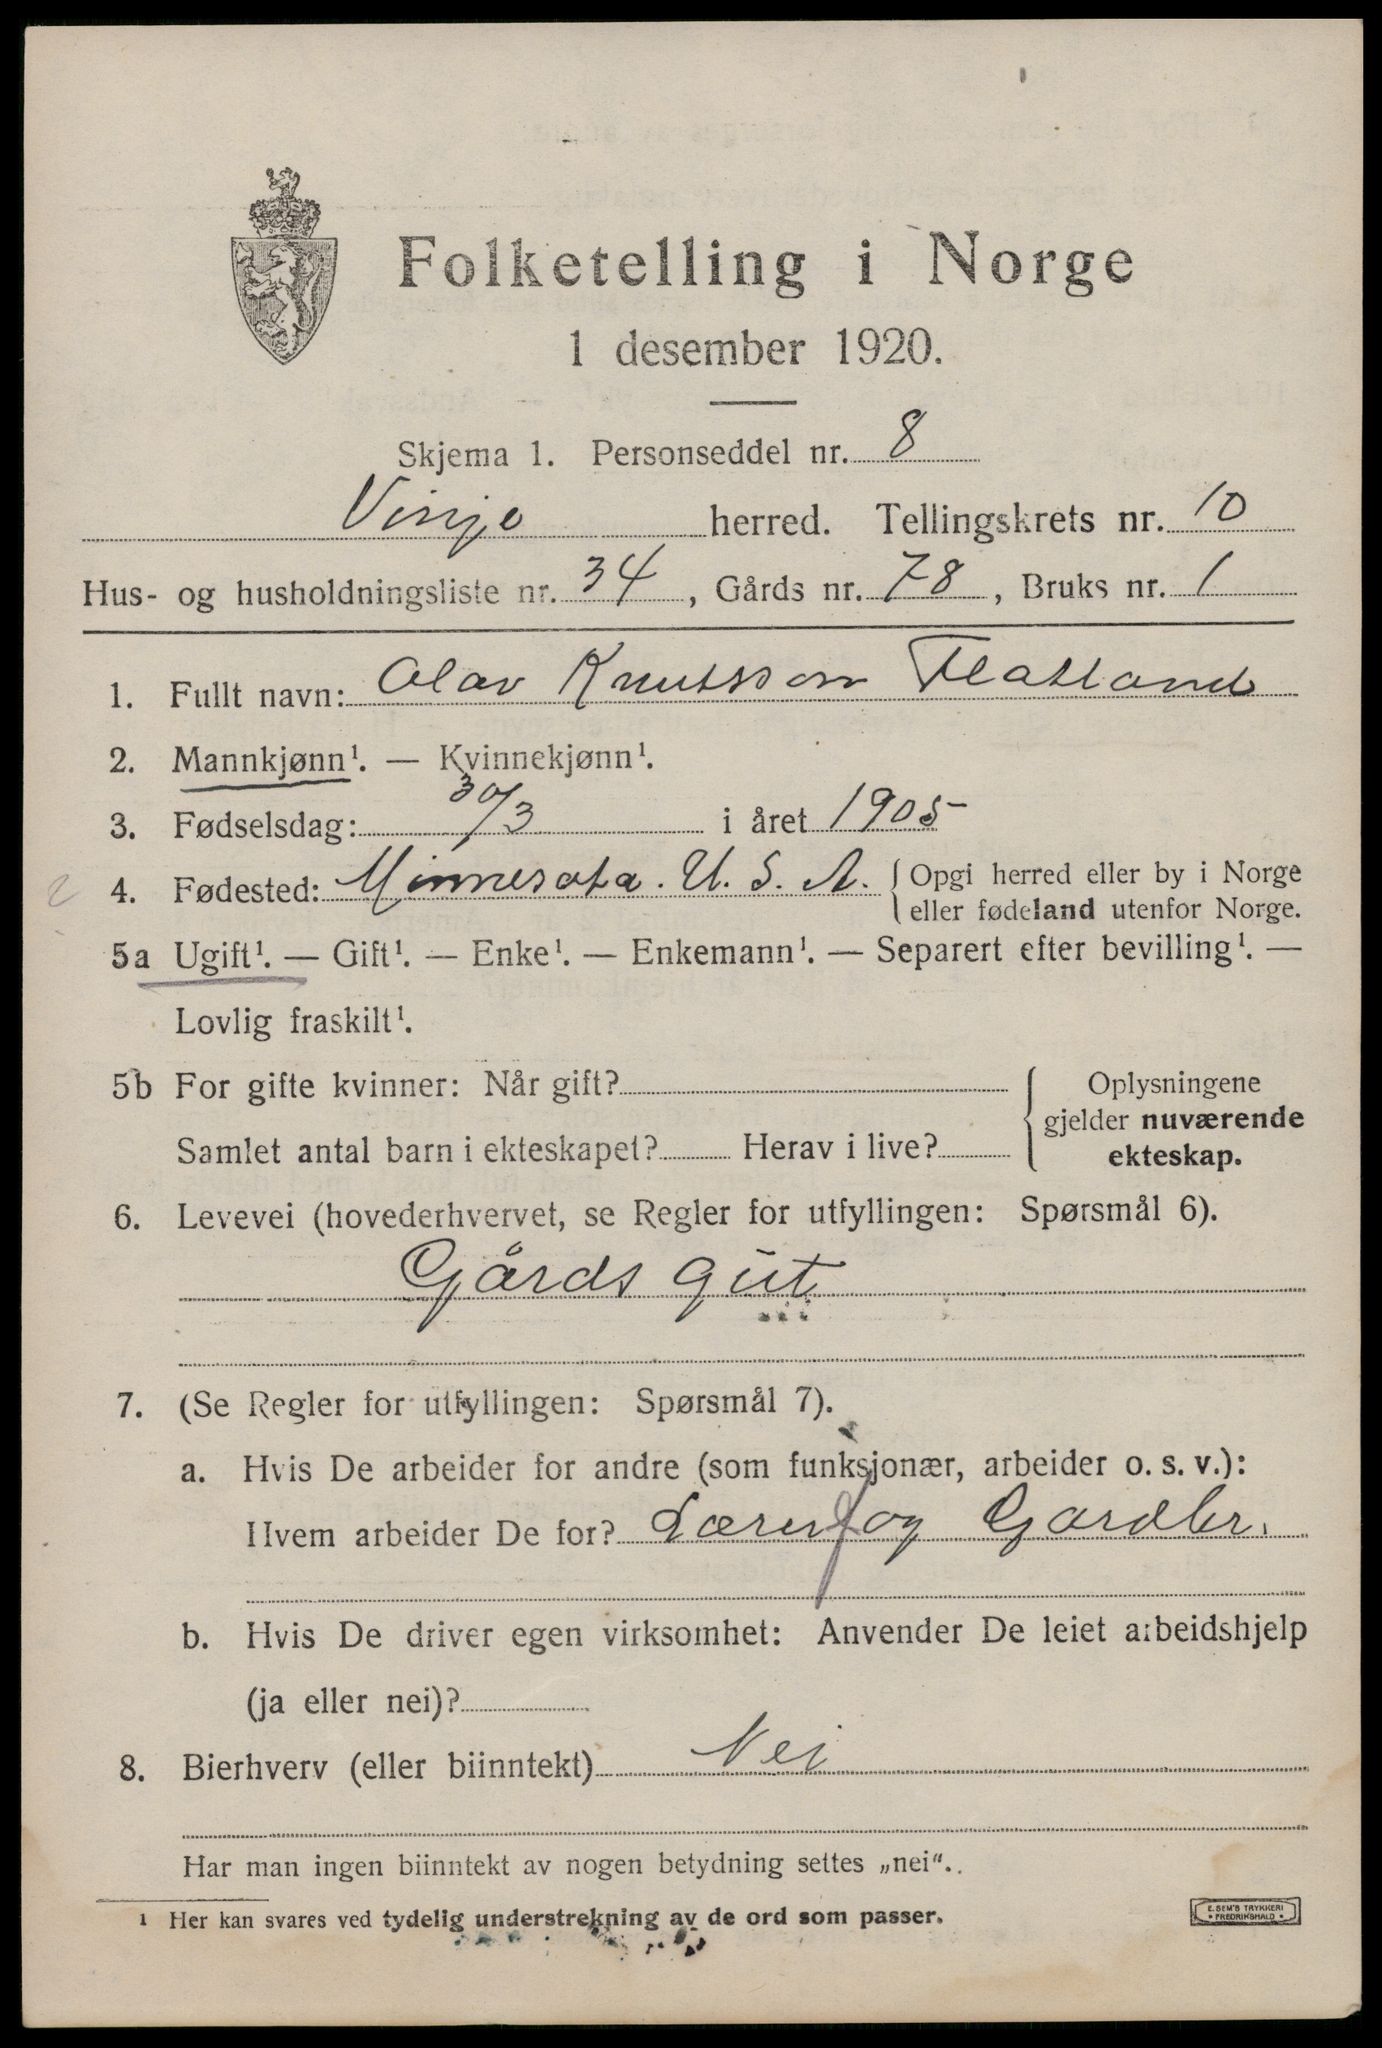 Folketelling i Norge
1 desember 1920.
Skjema 1. Personseddel nr. 8
Vinje herred. Tellingskrets nr. 10
Hus- og husholdningsliste nr. 34, Gårds nr. 78, Bruks nr. 1
1. Fullt navn: Olav Knutsson Flatland
2. Mannkjønn¹. — Kvinnekjønn¹.
3. Fødselsdag: 30/3 i året 1905
4. Fødested: Minnesota. U. S. A. Opgi herred eller by i Norge
eller fødeland utenfor Norge.
5a Ugift¹. — Gift¹. — Enke¹. — Enkemann¹. — Separert efter bevilling¹. —
Lovlig fraskilt¹.
5b For gifte kvinner: Når gift? Oplysningene
gjelder nuværende
Samlet antal barn i ekteskapet? Herav i live? ekteskap.
6. Levevei (hovederhvervet, se Regler for utfyllingen: Spørsmål 6).
Gårds gut
7. (Se Regler for utfyllingen: Spørsmål 7).
a. Hvis De arbeider for andre (som funksjonær, arbeider o. s. v.):
Hvem arbeider De for? Lærer og Gardbr.
b. Hvis De driver egen virksomhet: Anvender De leiet arbeidshjelp
(ja eller nei)?
8. Bierhverv (eller biinntekt) Nei
Har man ingen biinntekt av nogen betydning settes „nei“.
¹ Her kan svares ved tydelig understrekning av de ord som passer.
E. SEM'S TRYKKERI
• FREDRIKSHALD •